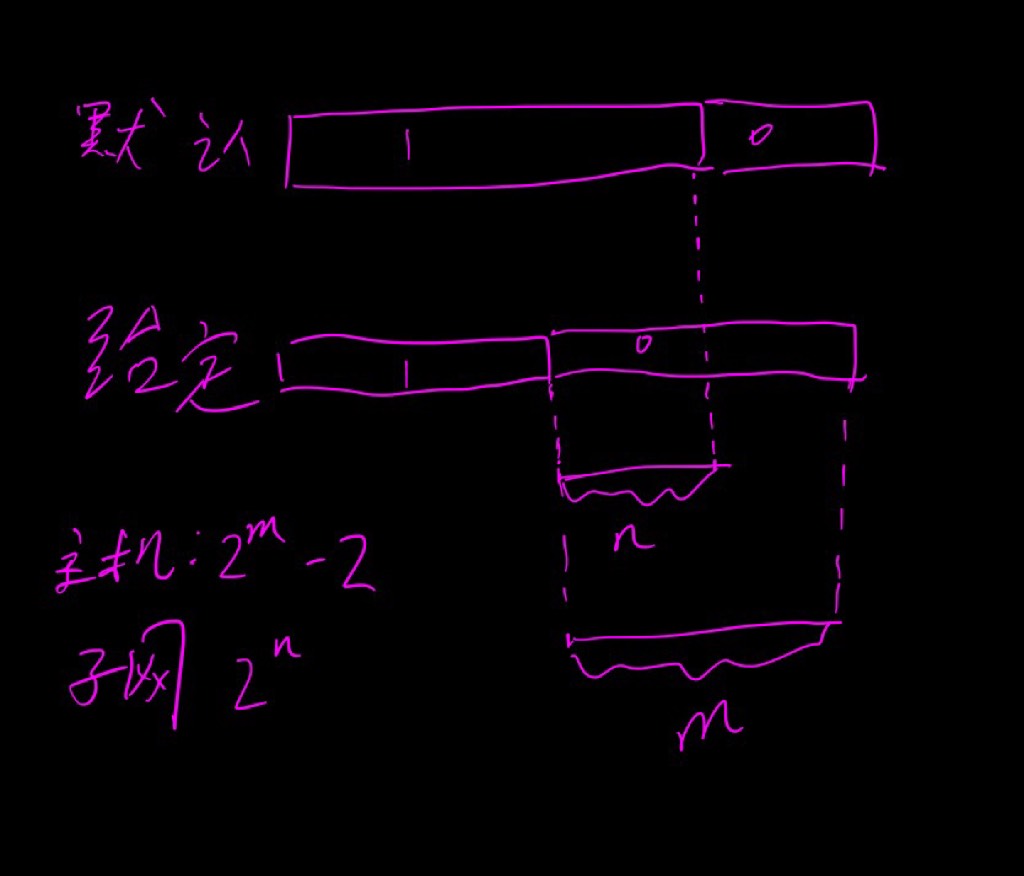 默认 1 0
给定 1 0
n
主机: 2^m - 2
子网 2^n
m